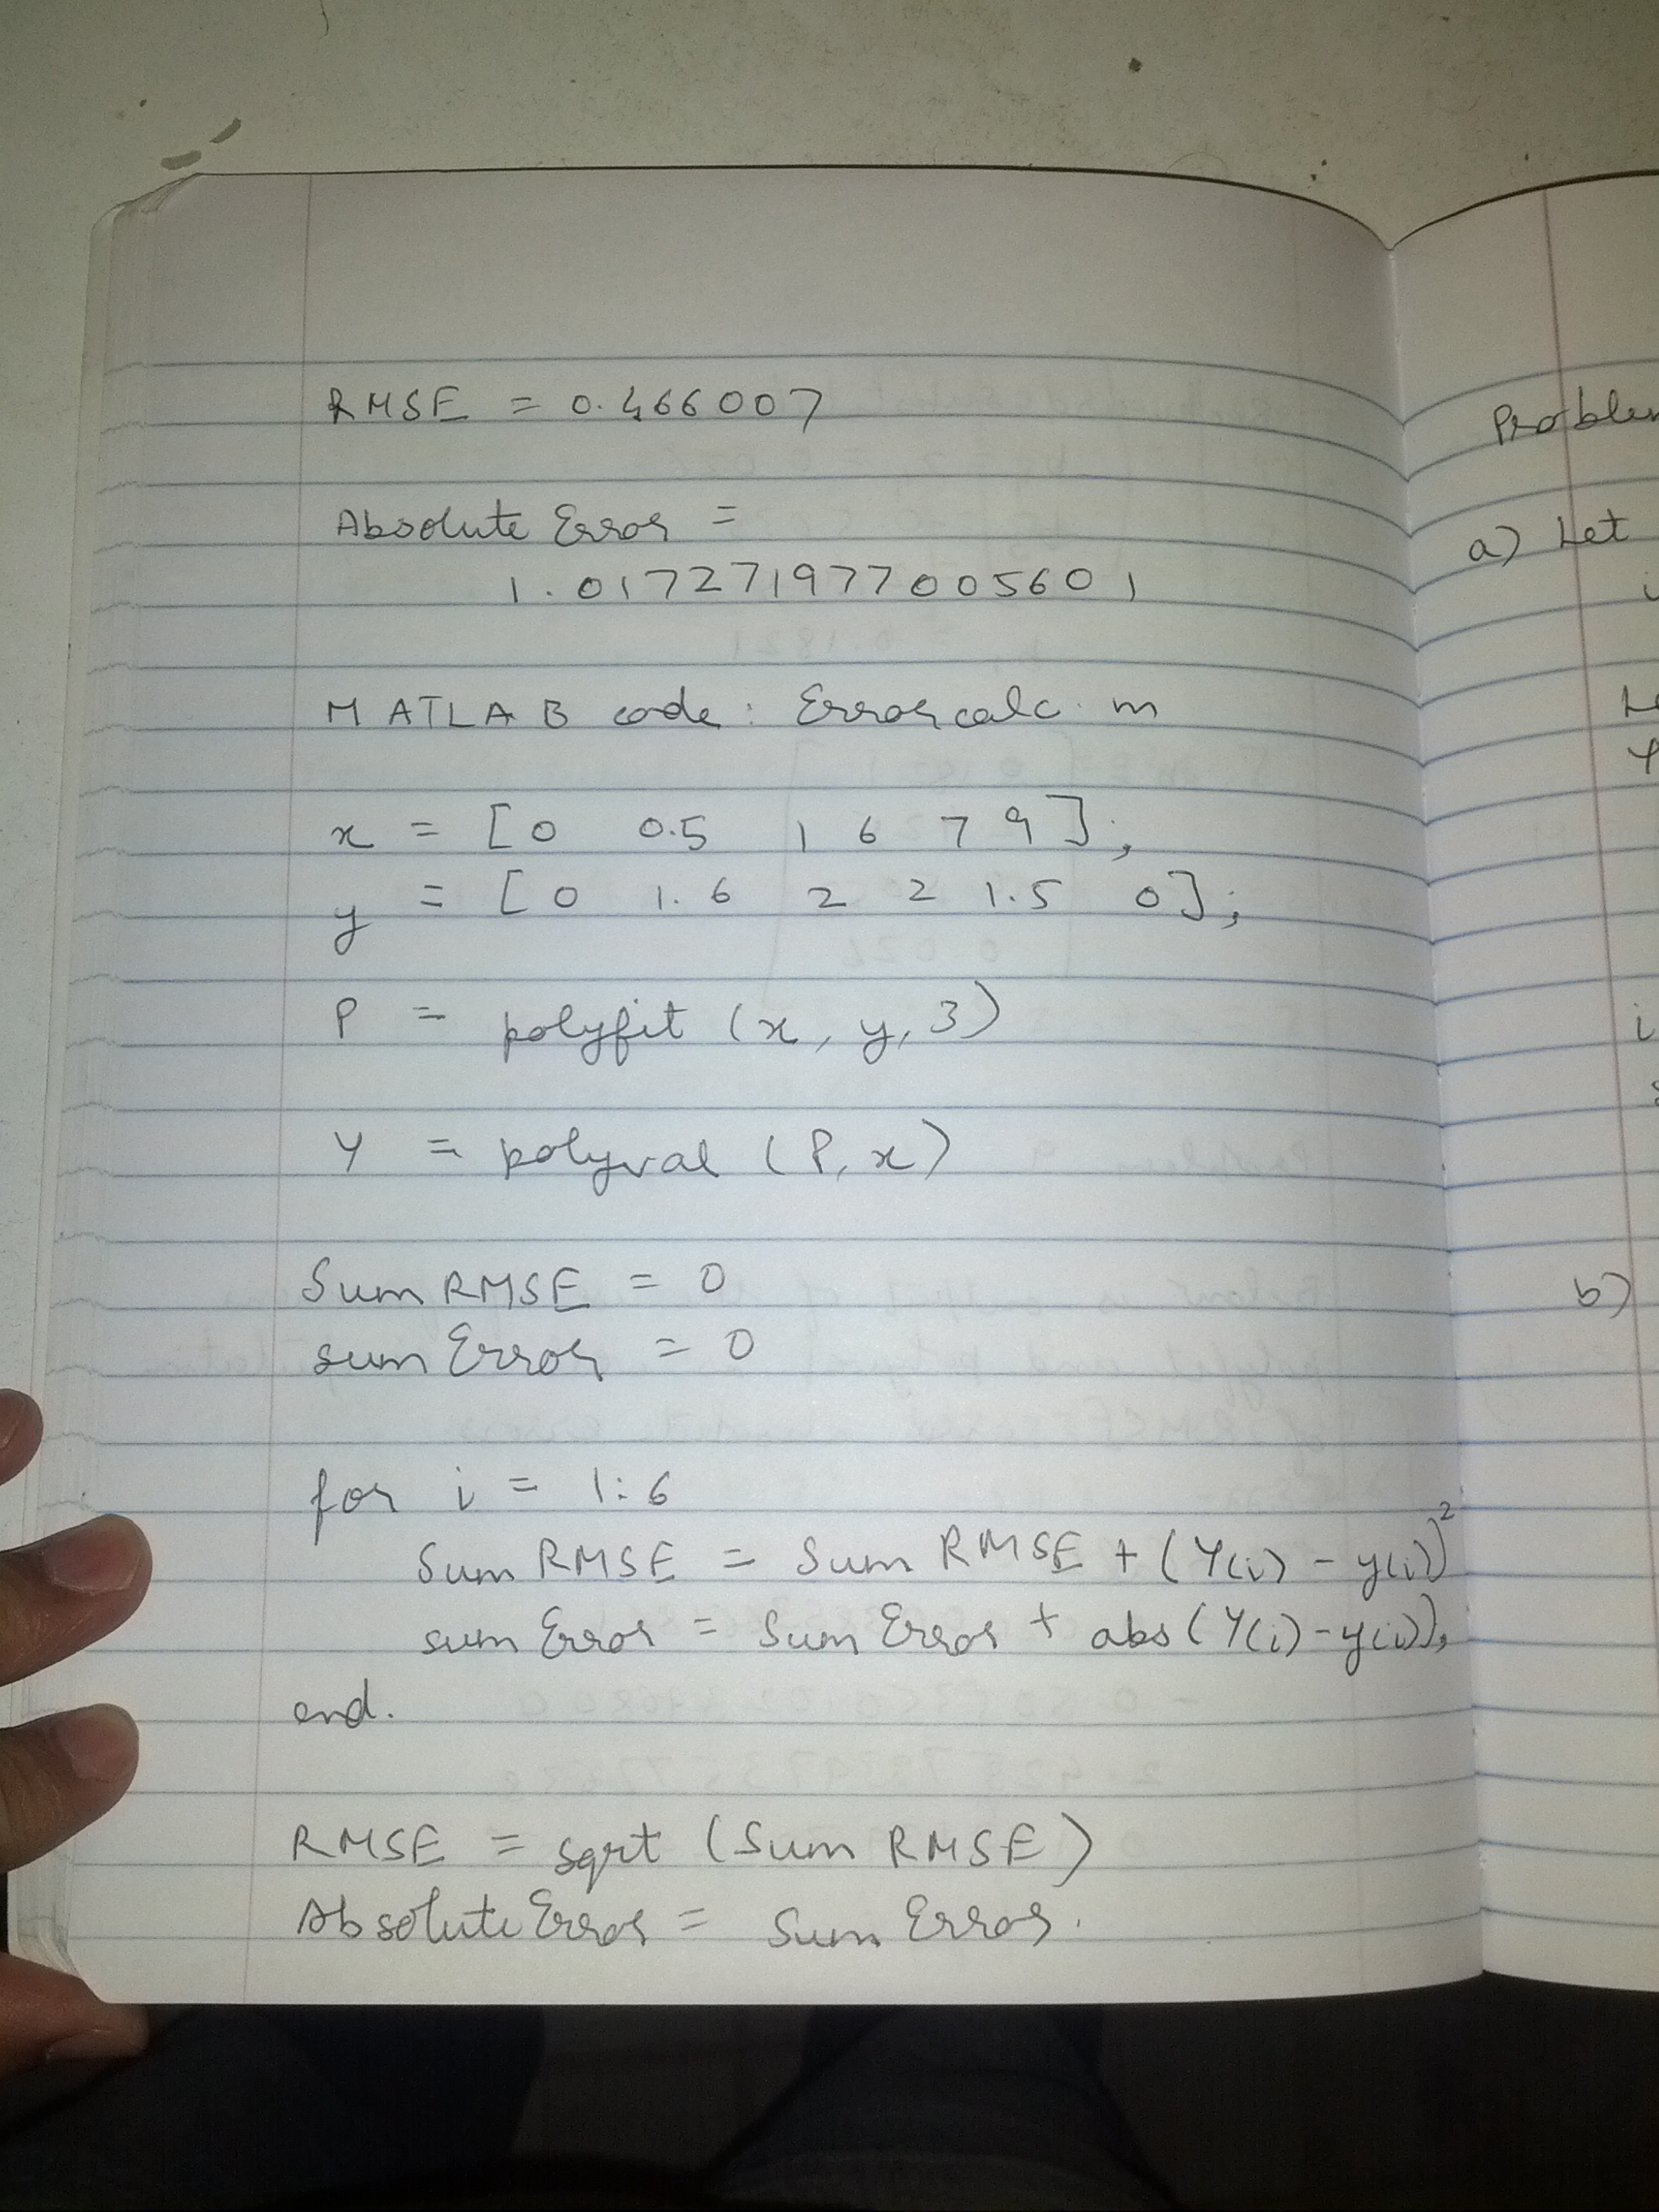 RMSE = 0.466007
Absolute Error =
1.017271977005601
MATLAB code: Errorcalc.m
x = [0 0.5 1 6 7 9];
y = [0 1.6 2 2 1.5 0];
P = polyfit (x, y, 3)
Y = polyval (P, x)
Sum RMSE = 0
sum Error = 0
for i = 1:6
Sum RMSE = Sum RMSE + (Y(i) - y(i))²
sum Error = Sum Error + abs (Y(i) - y(i));
end.
RMSE = sqrt (Sum RMSE)
Absolute Error = Sum Error.
Problem
a) Let
b)